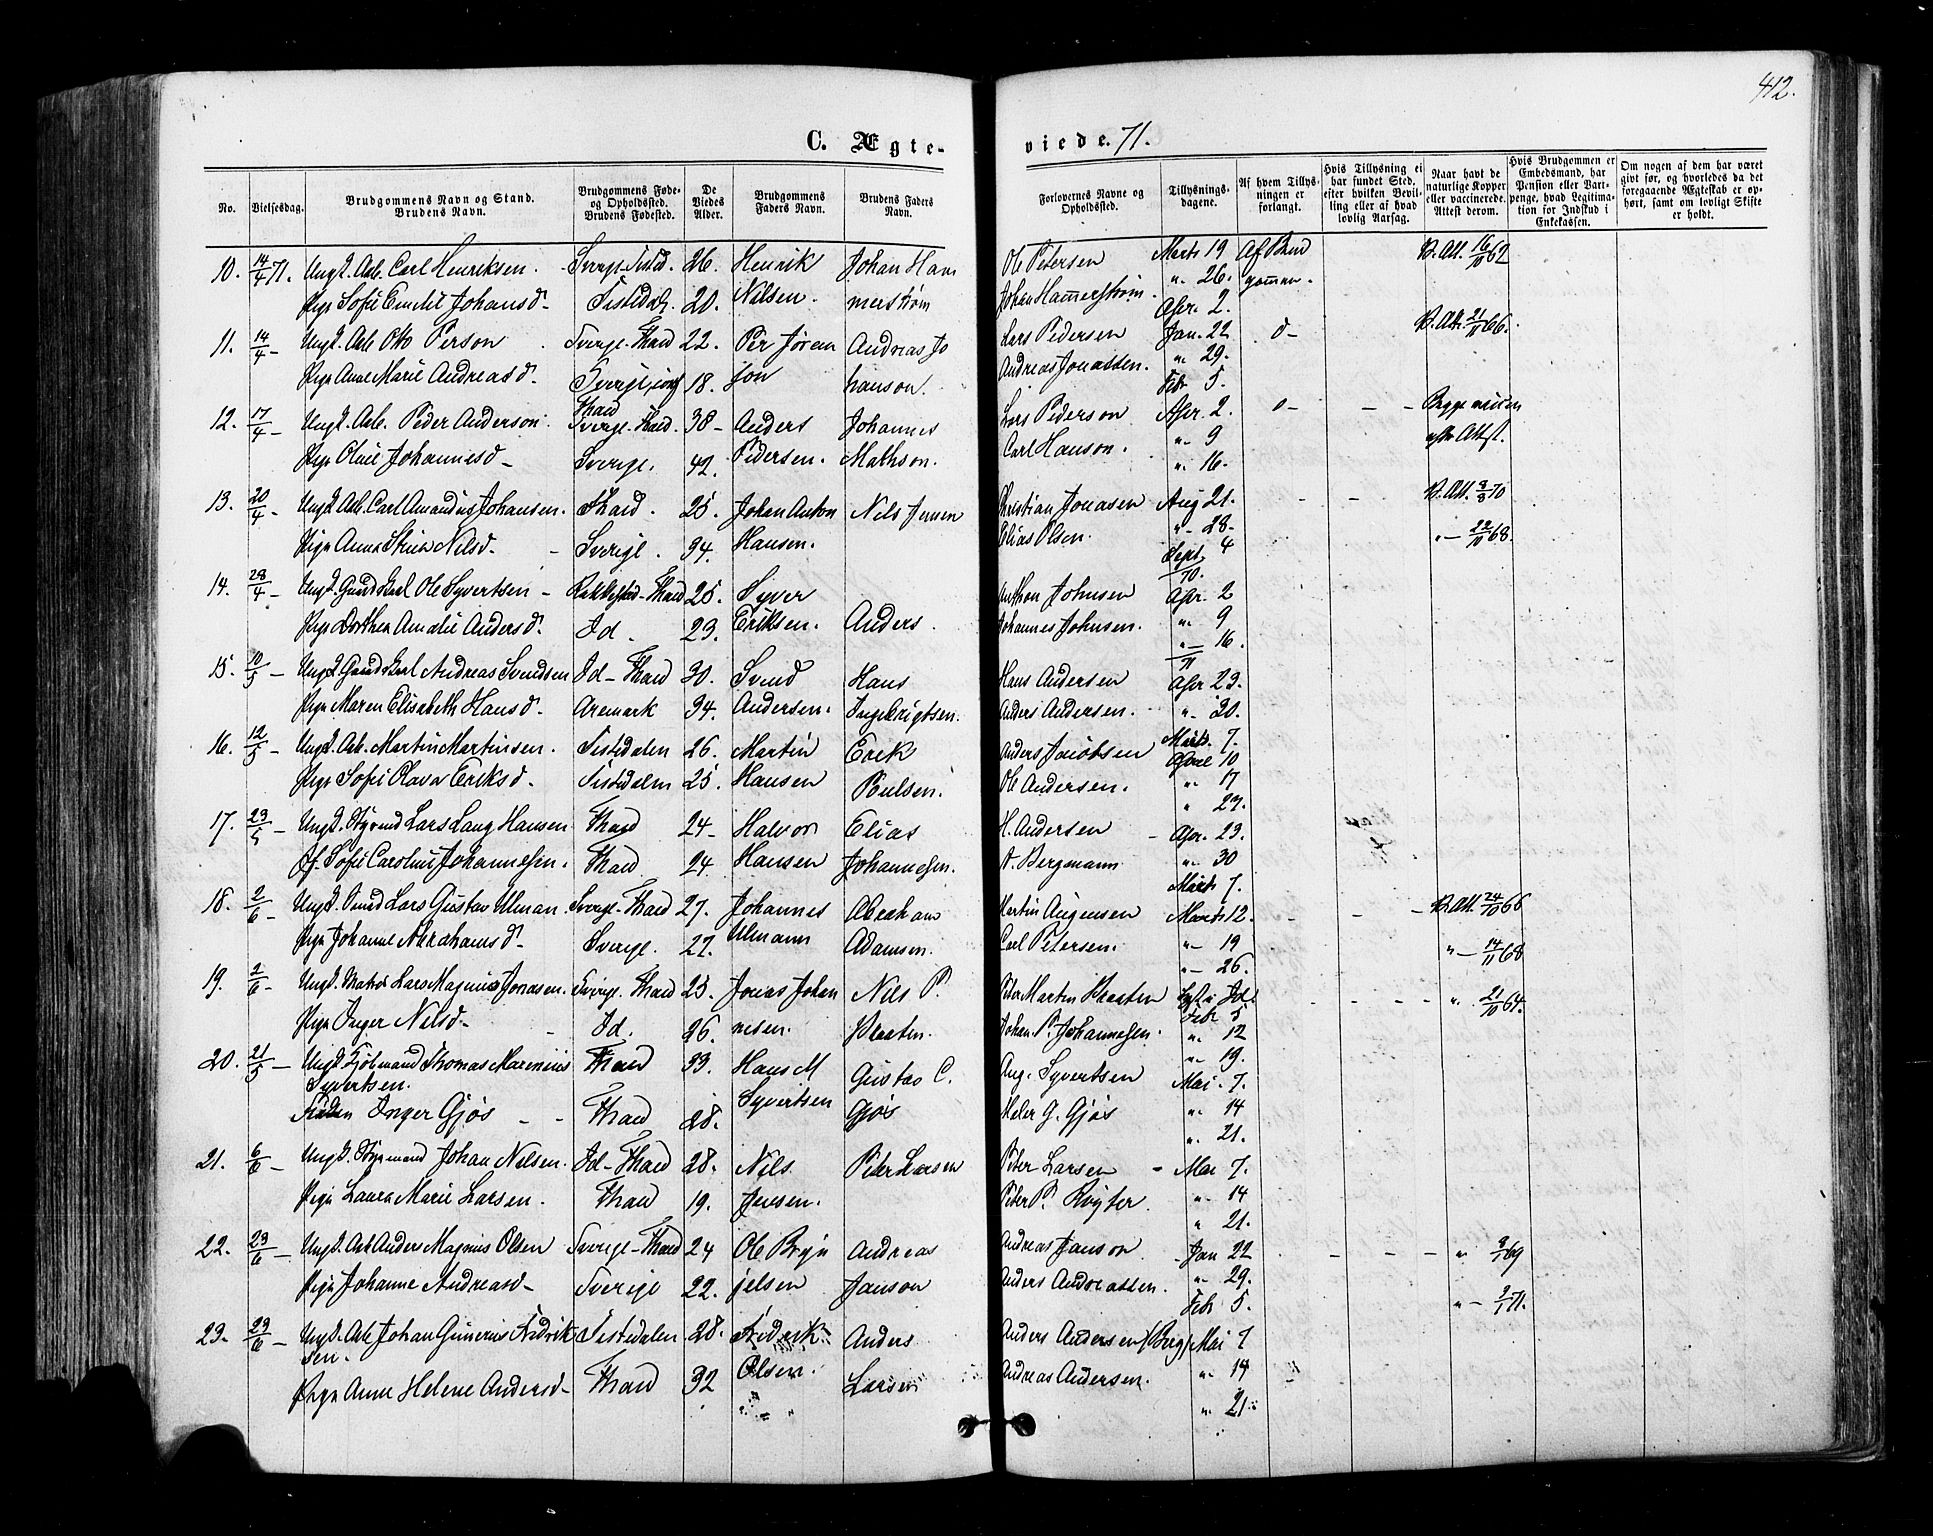 412.
C. Ægte-
viede. 71.
No.
Vielsesdag.
Brudgommens Navn og Stand.
Brudens Navn.
Brudgommens Føde-
og Opholdssted.
Brudens Fødested.
De
Viedes
Alder.
Brudgommens
Faders Navn.
Brudens Faders
Navn.
Forlovernes Navne og
Opholdssted.
Tillysnings-
dagene.
Af hvem Tillys-
ningen er
forlangt.
Hvis Tillysning ei
har fundet Sted,
efter hvilken Bevil-
ling eller af hvad
lovlig Aarsag.
Naar havt de
naturlige Kopper
eller vaccinerede.
Attest derom.
Hvis Brudgommen er
Embedsmand, har
Pension eller Vart-
penge, hvad Legitima-
tion for Indskud i
Enkekassen.
Om nogen af dem har været
givt før, og hvorledes da det
foregaaende Ægteskab er op-
hørt, samt om lovligt Skifte
er holdt.
10. 14/4 71. Ungk. Arb. Carl Henriksen. 26. Henrik Johan Ham Ole Petersen Marts 19 Af Brud V. Att. 16/10 62
Pige Sofie Emilie Johansd. Tistedal. 20. Nilsen. merstrøm Johan Hammerstrøm. " 26. gommen.
Apr. 2.
11. 14/4 - Ungk. Arb. Otto Person Sverige-Fhald 22. Per Jøran Andreas Jo Lars Pedersen Jan. 22 d- V. Att. 21/11 66.
Pige Anne Marie Andreasd. Sverige, 18. son hanson. Andreas Jonassen. " 29.
Fhald Feb 5.
12. 17/4 - Ungk. Arb. Peder Anderson. Sverige-Fhald. 38- Anders Johannes Lars Pederson Apr. 2. - - Begge
Carl Hanson. " 9 Attst.
Pige Oline Johannesd- Sverige. 42. Pedersen. Mathson. " 16.
13. 20/4 - Ungk. Arb. Carl Amandus Johansen. Fhald. 25. Johan Anton Nils Jensen Christian Jonasen Aug 21. - - V. Att. 9/8 70
Pige Anna Nilsd- - Sverige. 34. Hansen. Elias Olsen. " 28- " - 22/10 68.
Sept. 4
10.
14. 28/4 - Ungk. Ole Syvertsen - Rakkestad-Fhald 25. Syver Anthon Johnsen Apr. 2
Pige Dorthea Amalie Andersd. Id. 23. Eriksen. Anders. Johannes Johnsen. " 9
" 16.
11
15. 10/5 - Ungk. Andreas Svendsen Id-Fhald 30. Svend Hans Hans Andersen Apr 23.
Pige Maren Elisabeth Hansd. Aremark 34. Andersen. Ingebrigtsen. Anders Andersen. " 30.
Marts. 7.
16. 12/5 - Ungk. Arb. Martin Martinsen. Tistedalen 26. Martin Erek Anders Jacobsen April 10
Pige Sofie Olava Eriksd. Tistedalen 25. Hansen Poulsen. Ole Andersen. " 17
" 23.
17. 23/5 - Ungk. Styrmd Lars Lang Hansen Fhald 24- Halvor Elias H. Andersen - Apr. 23.
Jf. Sofie Caroline Johannessen. Fhald 24. Hansen Johannessen. A. Bergmann " 30
Marts 7.
18. 2/6 - Ungk. Lars Gustav Ulman. Sverige-Fhald 27. Johannes Abraham Martin Augensen Marts 12. - - - V. Att. 24/10 66
Pige Johanne Abrahamsd. Sverige. 27. Ulmann Adamsen. Carl Petersen. " 19 " - 14/11 68
" 26.
19. 2/6 - Ungk. Matros Lars Magnus Jonasen. Sverige. Fhald 25. Jonas Johan Nils P. Peter Martin Praaten Lyst i Id. - - - - " 21/10 64.
Feb 5
Pige Inger Nilsd- - Id. 26. nesen. Praaten. Johan P. Johannessen. " 12
" 19.
20. 21/5 - Ungk. Kjøbmand Thomas Marenius Fhald 33. Hans M Gustav C. Aug. Syvertsen Mai. 7.
Syvertsen.
Frøken Inger Gjøs - - Fhald 28. Syvertsen Gjøs G. Gjøs " 14
" 21.
21. 6/6 - Ungk. Styrmand Johan Nilsen. Id-Fhald 28. Nils. Peter Larsen Peter Larsen - Mai 7.
Pige Laura Marie Larsen. Fhald 19. Jensen. Peter P. Røyter. " 14
" 21.
22. 23/6 - Ungk. Arb Anders Magnus Olsen Sverige-Fhald 24 Ole Bryn Andreas Andreas Janson - Jan 22 - - - - " 9/1 69
Pige Johanne Andreasd- Sverige 22. jelsen Janson Anders Andreassen. " 29.
Feb 5. " - 2/1 71.
23. 23/6 - Ungk. Arb Johan Gunerius Fredrik Tistedalen 28. Fredrik Anders Anders Andersen (Berg) Mai 7
sen.
Pige Anne Helene Andersd- Fhald 32 Olsen. Larsen Andreas Andersen. " 14
" 21.